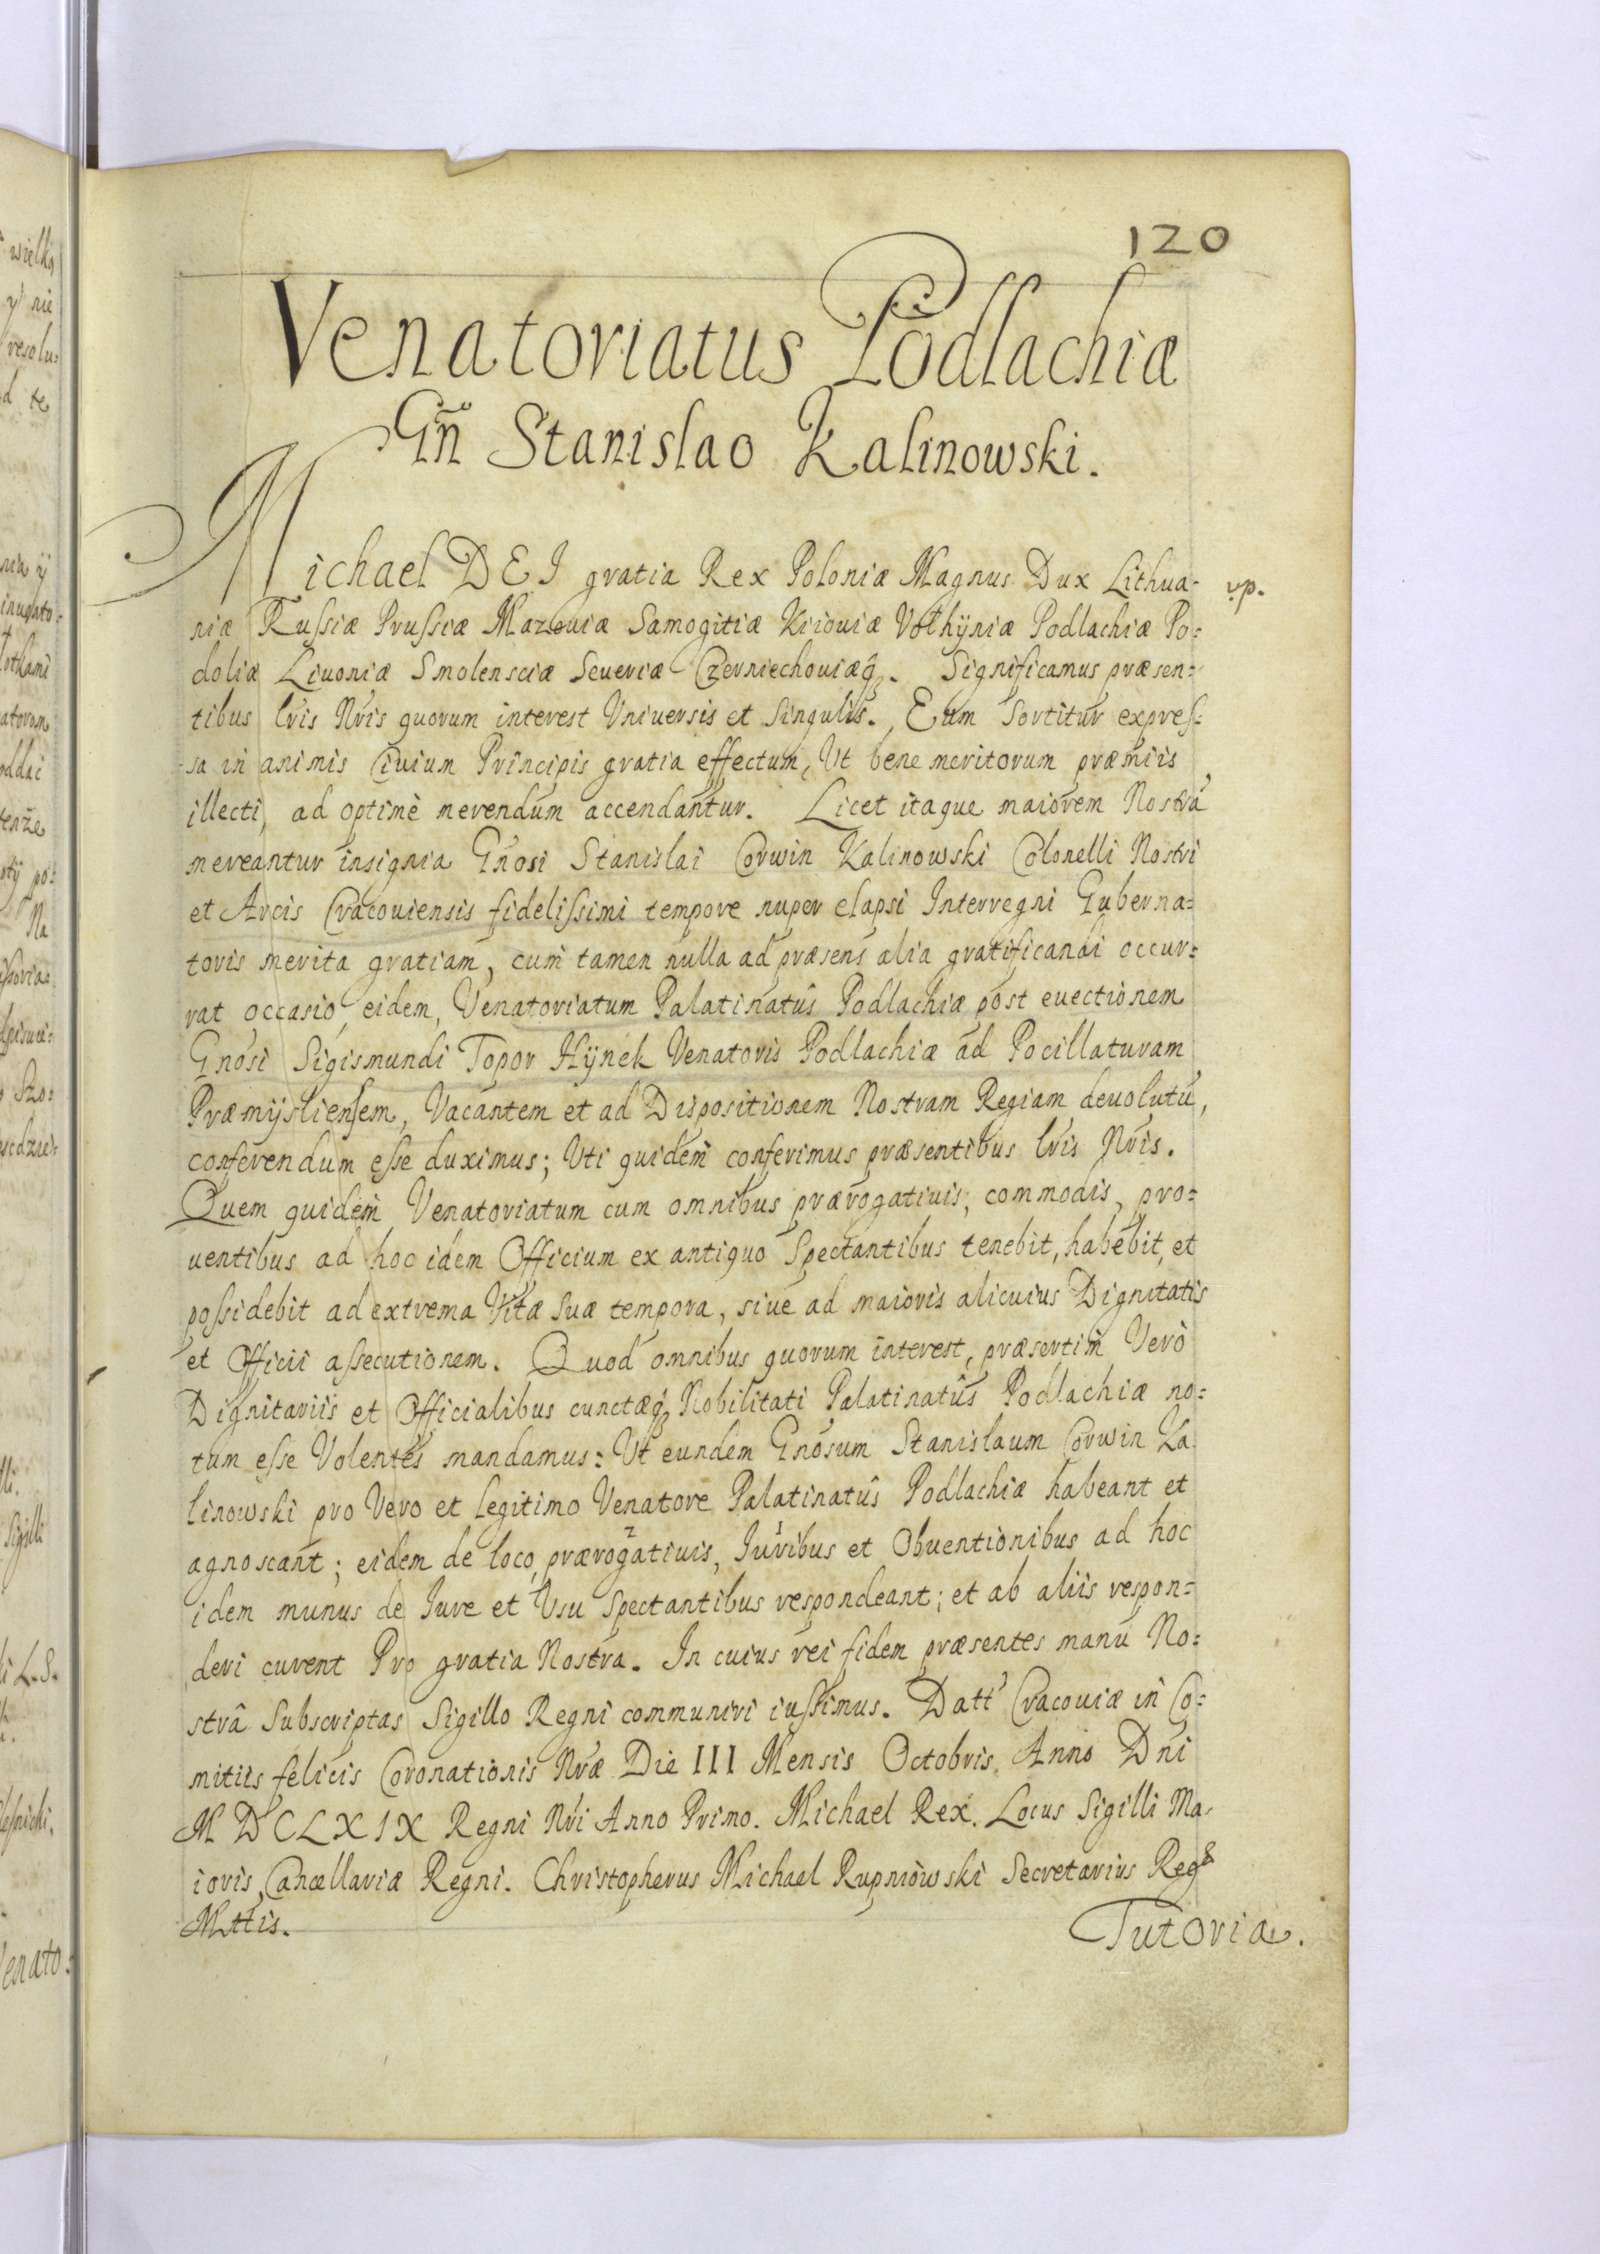 120
Venatoriatus Podlachiæ
Gñ Stanislao Kalinowski.
Michael DEI gratia Rex Poloniæ Magnus Dux Lithua-
vp.
niæ Russiæ Prussiæ Mazouiæ Samogitiæ Kiiouiæ Volhÿniæ Podlachiæ Po=
doliæ Liuoniæ Smolensciæ Seueriæ Czerniechouiæq̢. Significamus præsen=
tibus lris Nris quorum interest Vniuersis et Singulis. Eum Sortitur expres-
sa in animis Ciuium Principis gratia effectum, Vt bene meritorum præmiis
illecti, ad optimè merendum accendantur. Licet itaque maiorem Nostrã
mereantur insignia Gnosi Stanislai Corwin Kalinowski Colonelli Nostri
et Arcis Cracouiensis fidelissimi tempore nuper elapsi Interregni Guberna=
toris merita gratiam, cum tamen nulla ad præsens alia gratificandi occur=
rat occasio, eidem, Venatoriatum Palatinatûs Podlachiæ post euectionem
Gnosi Sigismundi Topor Hÿnek Venatoris Podlachiæ ad Pocillaturam
Præmÿsliensem, Vacantem et ad Dispositionem Nostram Regiam deuolutũ,
conferendum esse duximus; Vti quidem conferimus præsentibus lris Nris.
Quem quidem Venatoriatum cum omnibus prærogatiuis, commodis, pro=
uentibus ad hoc idem Officium ex antiquo Spectantibus tenebit, habebit, et
possidebit ad extrema Vitæ Suæ tempora, siue ad maioris alicuius Dignitatis
et Officii assecutionem. Quod omnibus quorum interest, præsertim Verò
Dignitariis et Officialibus cunctæq̢ Nobilitati Palatinatûs Podlachiæ no=
tum esse Volentes mandamus: Vt eundem Gnosum Stanislaum Corwin Ka
linowski pro Vero et legitimo Venatore Palatinatûs Podlachiæ habeant et
agnoscant; eidem de loco, prærogatiuis, Iuribus et Obuentionibus ad hoc
idem munus de Iure et Vsu Spectantibus respondeant; et ab aliis respon=
deri curent Pro gratia Nostra. In cuius rei fidem præsentes manu No=
strâ Subscriptas Sigillo Regni communiri iussimus. Datt Cracouiæ in Co=
mitiis felicis Coronationis Nræ Die III Mensis Octobris. Anno Dni
MDCLXIX Regni Nri Anno Primo. Michael Rex. Locus Sigilli Ma-
ioris Cancellariæ Regni. Christopherus Michael Rupniowski Secretarius Reg
Mttis.
Tutoria.